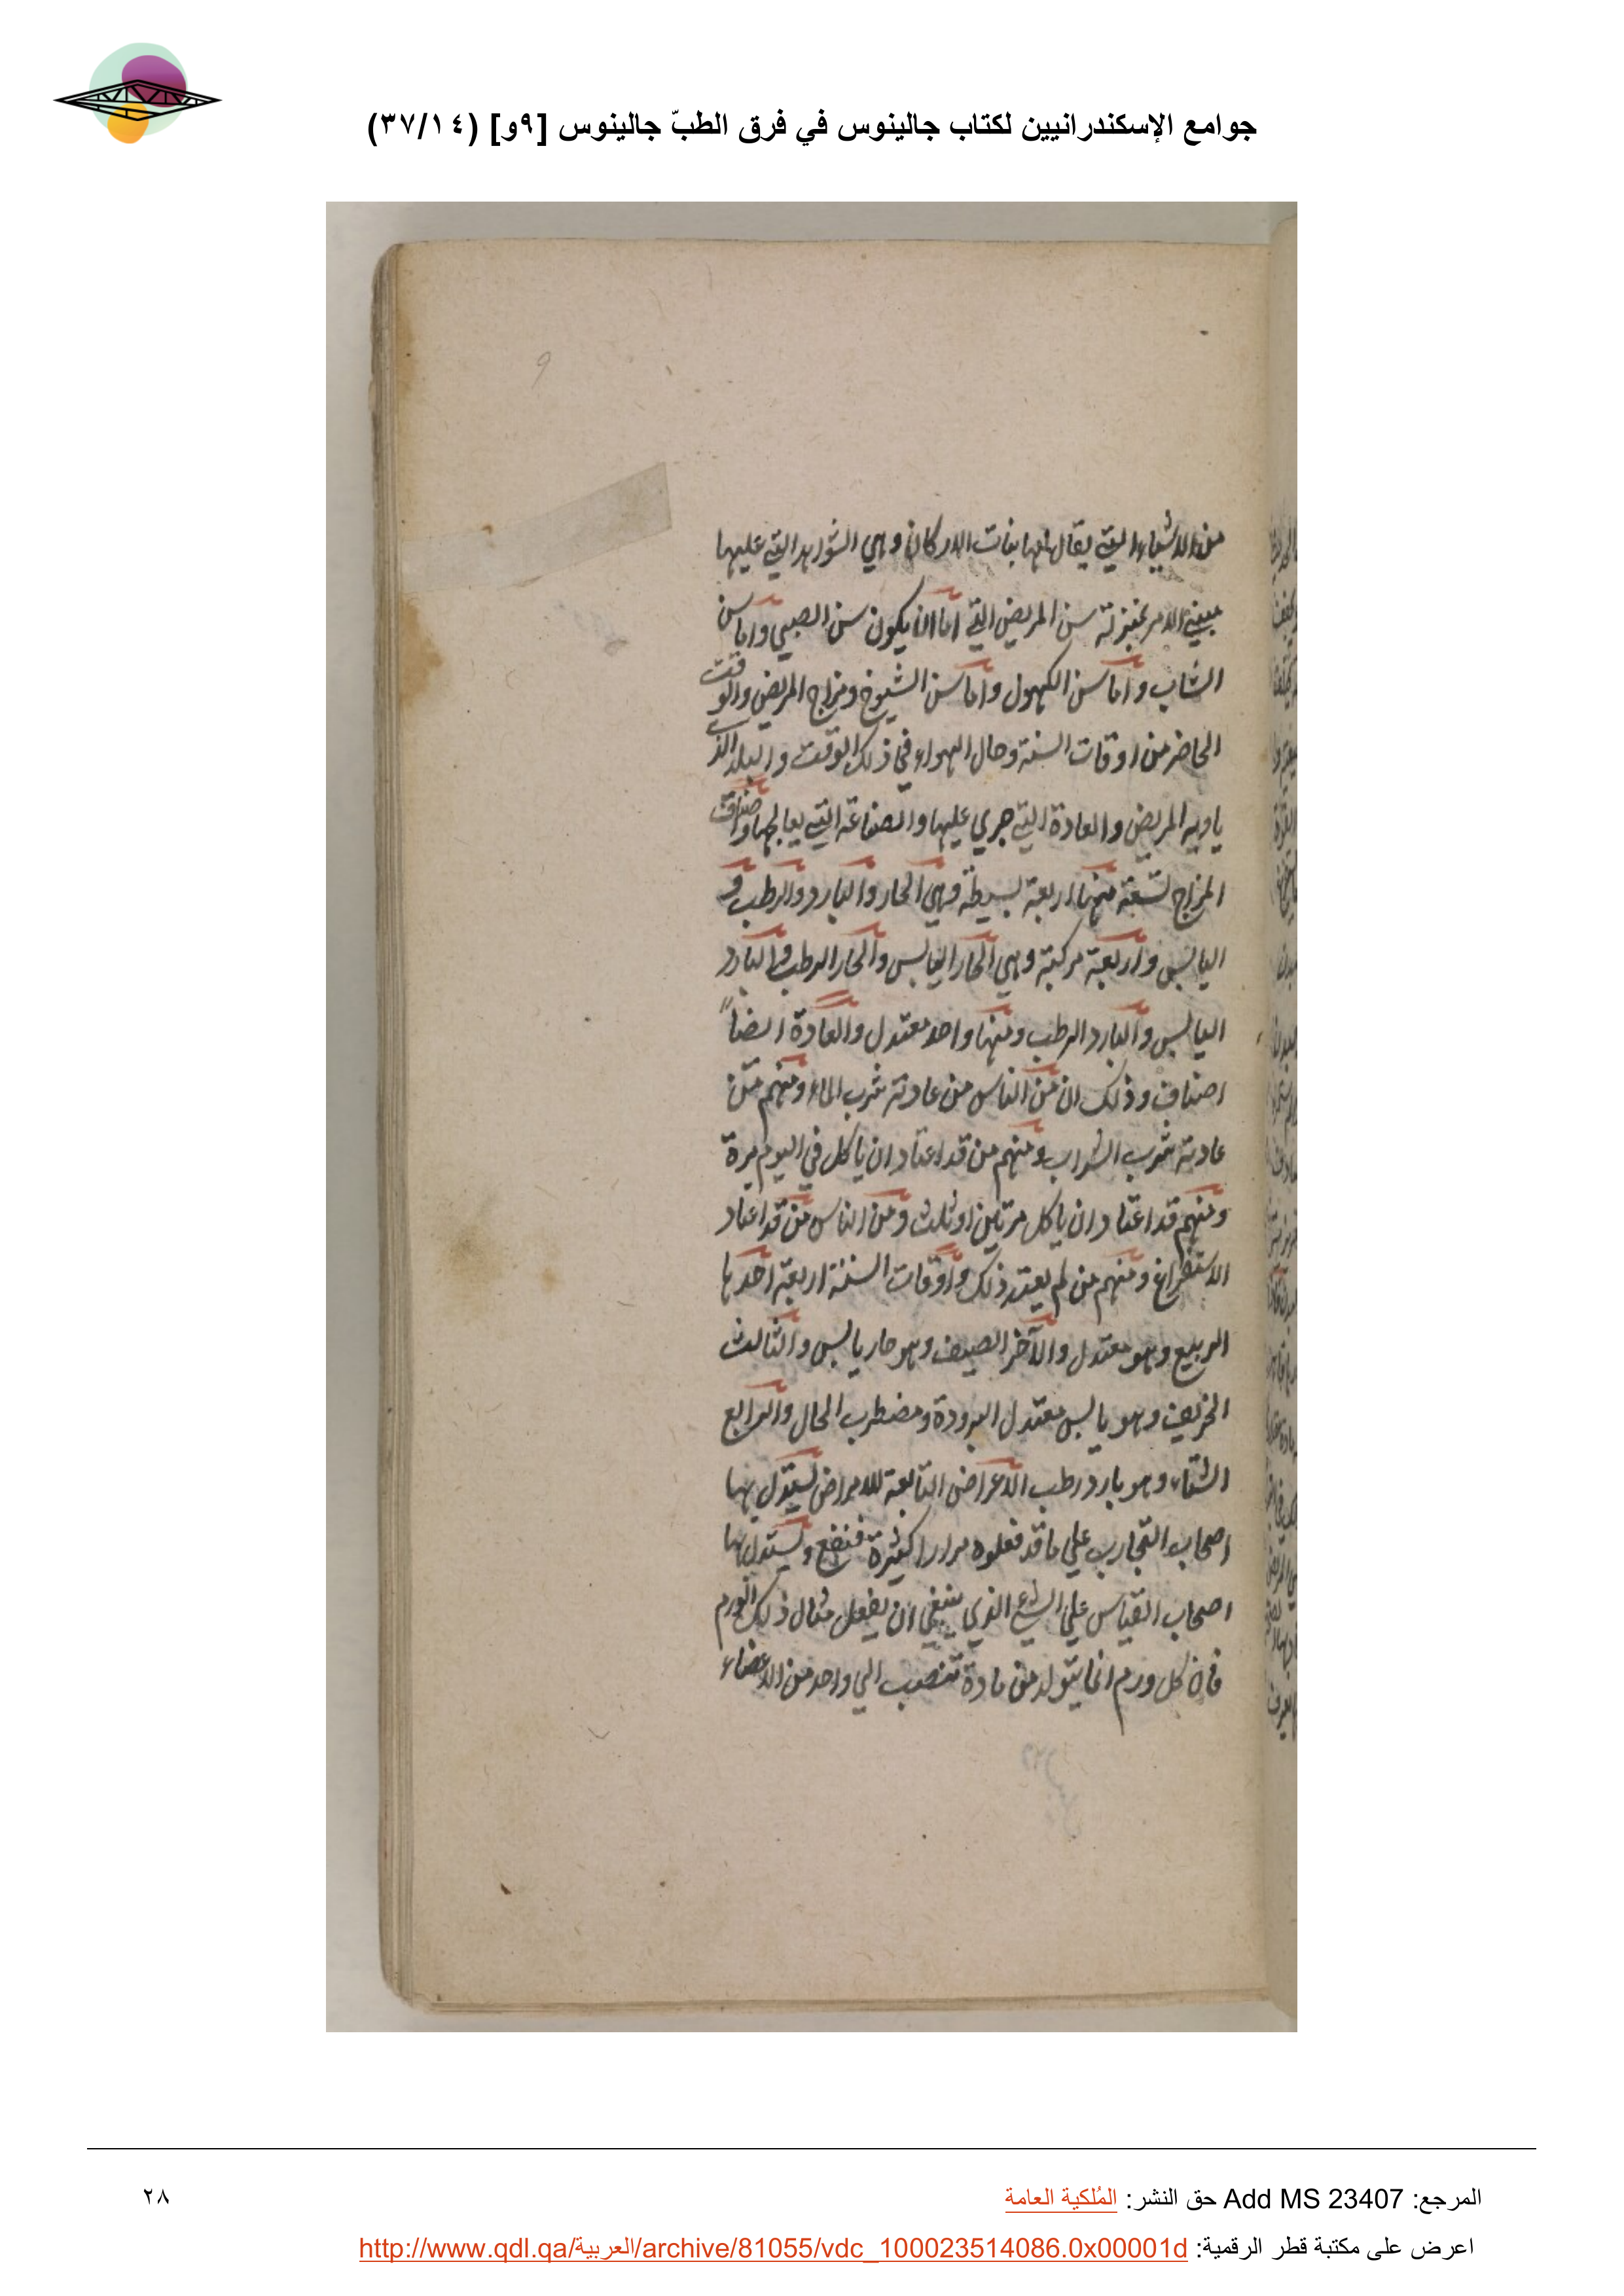 جوامع الإسكندرانيين لكتاب جالينوس في فرق الطبّ جالينوس [٩و] (٣٧/١٤)
9
من الاشياء التي يقال لها بنات الاركان وهي الشواهد التي عليها
مبني الامر بمنزلة سن المريض التي اما ان يكون سن الصبي واما سن
الشاب واما سن الكهول واما سن الشيوخ ومزاج المريض والوقت
الحاضر من اوقات السنة وحال الهواء في ذلك الوقت والبلد الذي
ياويه المريض والعادة التي جري عليها والصناعة التي يعالجها واصناف
المزاج تسعة منها اربعة بسيطة وهي الحار والبارد والرطب و
اليابس واربعة مركبة وهي الحار اليابس والحار الرطب والبارد
اليابس والبارد الرطب ومنها واحد معتدل والعادة ايضاً
اصناف وذلك ان من الناس من عادته شرب الماء ومنهم من
عادته شرب الشراب ومنهم من قد اعتاد ان ياكل في اليوم مرة
ومنهم قد اعتاد ان ياكل مرتين او ثلث ومن الناس من قد اعتاد
الاستفراغ ومنهم من لم يعتد ذلك واوقات السنة اربعة احدها
الربيع وهو معتدل والآخر الصيف وهو حار يابس والثالث
الخريف وهو يابس معتدل البرودة ومضطرب الحال والرابع
الشتاء وهو بارد رطب الاعراض التابعة للامراض يستدل بها
اصحاب التجارب علي ما قد فعلوه مرارا كثيرة فنفع ويستدل بها
اصحاب القياس علي الشيء الذي ينبغي ان يفعل مثال ذلك الورم
فان كل ورم انما يتولد من مادة تنصب الي واحد من الاعضاء
المرجع: Add MS 23407 حق النشر: المُلكية العامة
٢٨
اعرض على مكتبة قطر الرقمية: http://www.qdl.qa/العربية/archive/81055/vdc_100023514086.0x00001d